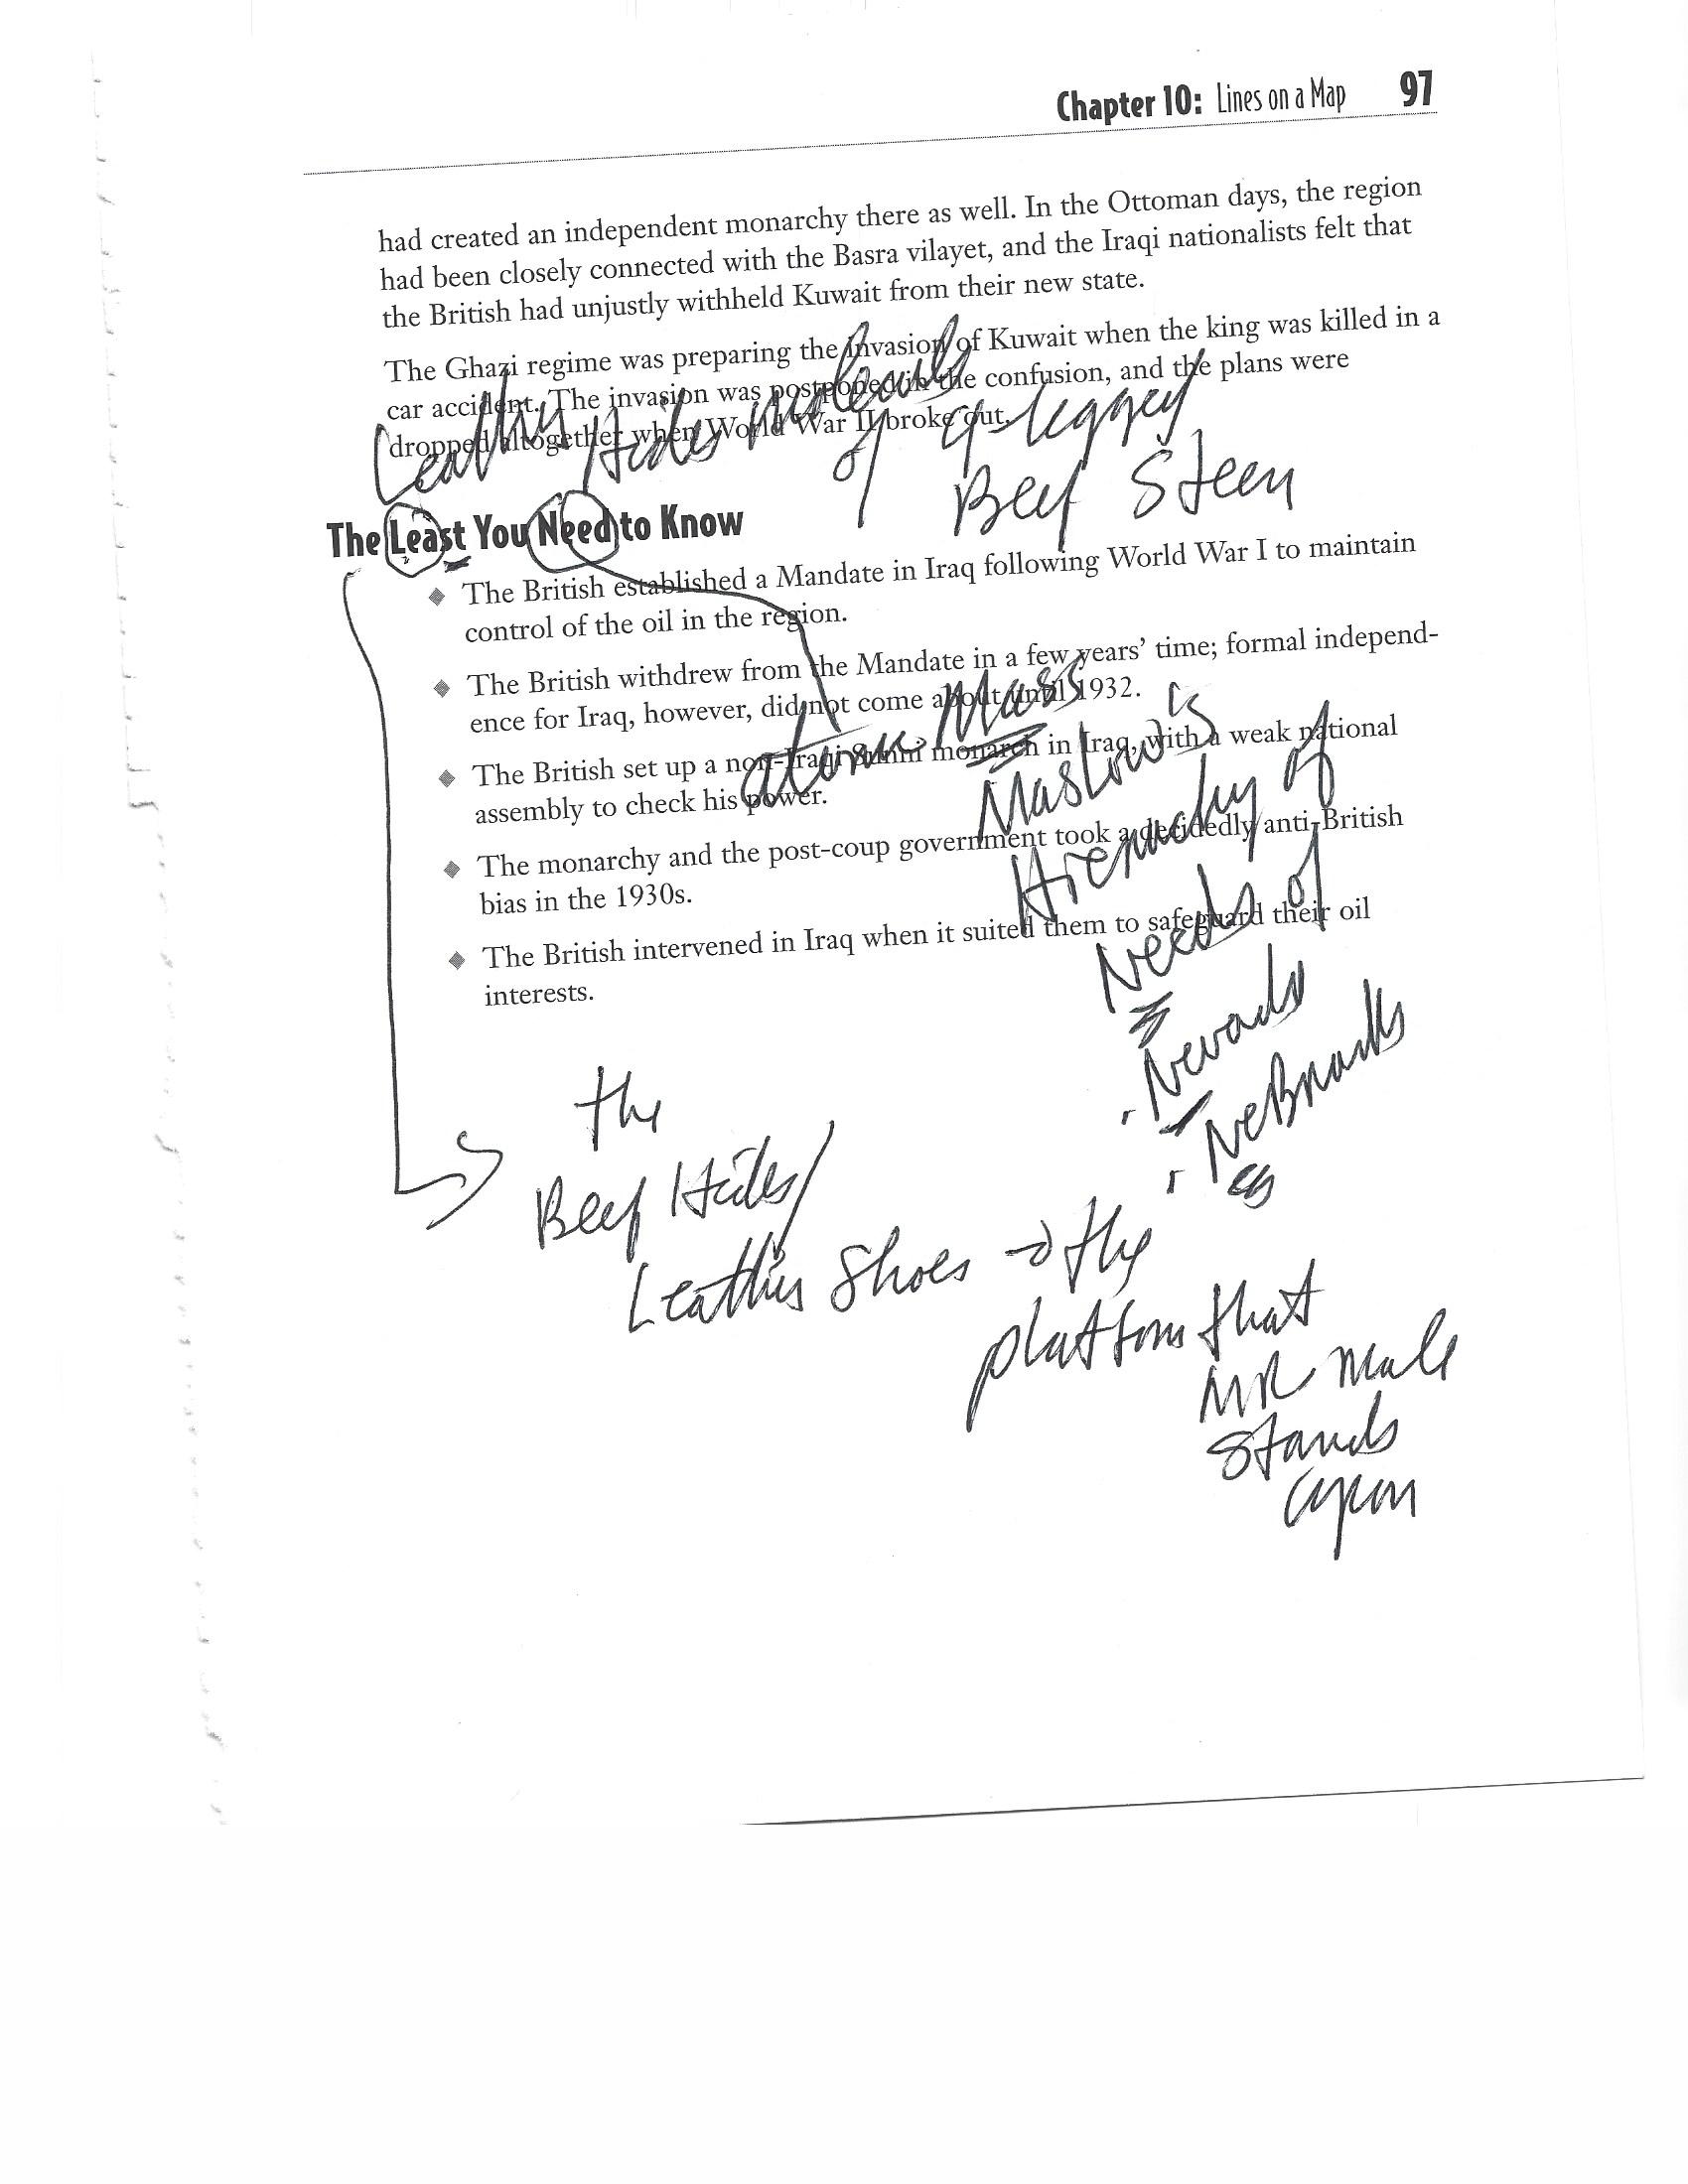 Chapter 10: Lines on a Map 97
had created an independent monarchy there as well. In the Ottoman days, the region
had been closely connected with the Basra vilayet, and the Iraqi nationalists felt that
the British had unjustly withheld Kuwait from their new state.
The Ghazi regime was preparing the invasion of Kuwait when the king was killed in a
car accident. The invasion was postponed in the confusion, and the plans were
dropped altogether when World War II broke out.
Hides
of 4-legged
Beef Steer
The Least You Need to Know
◆ The British established a Mandate in Iraq following World War I to maintain
control of the oil in the region.
◆ The British withdrew from the Mandate in a few years' time; formal independ-
ence for Iraq, however, did not come about until 1932.
◆ The British set up a non-Iraqi Sunni monarch in Iraq, with a weak national
assembly to check his power.
◆ The monarchy and the post-coup government took a decidedly anti-British
bias in the 1930s.
◆ The British intervened in Iraq when it suited them to safeguard their oil
interests.
atomic Mass
Maslow's
Hierachy of
Needs of
Nevada
NeBraska
the
Beef Hides/
Leather Shoes → the
platform that
MR Male
Stands
upon